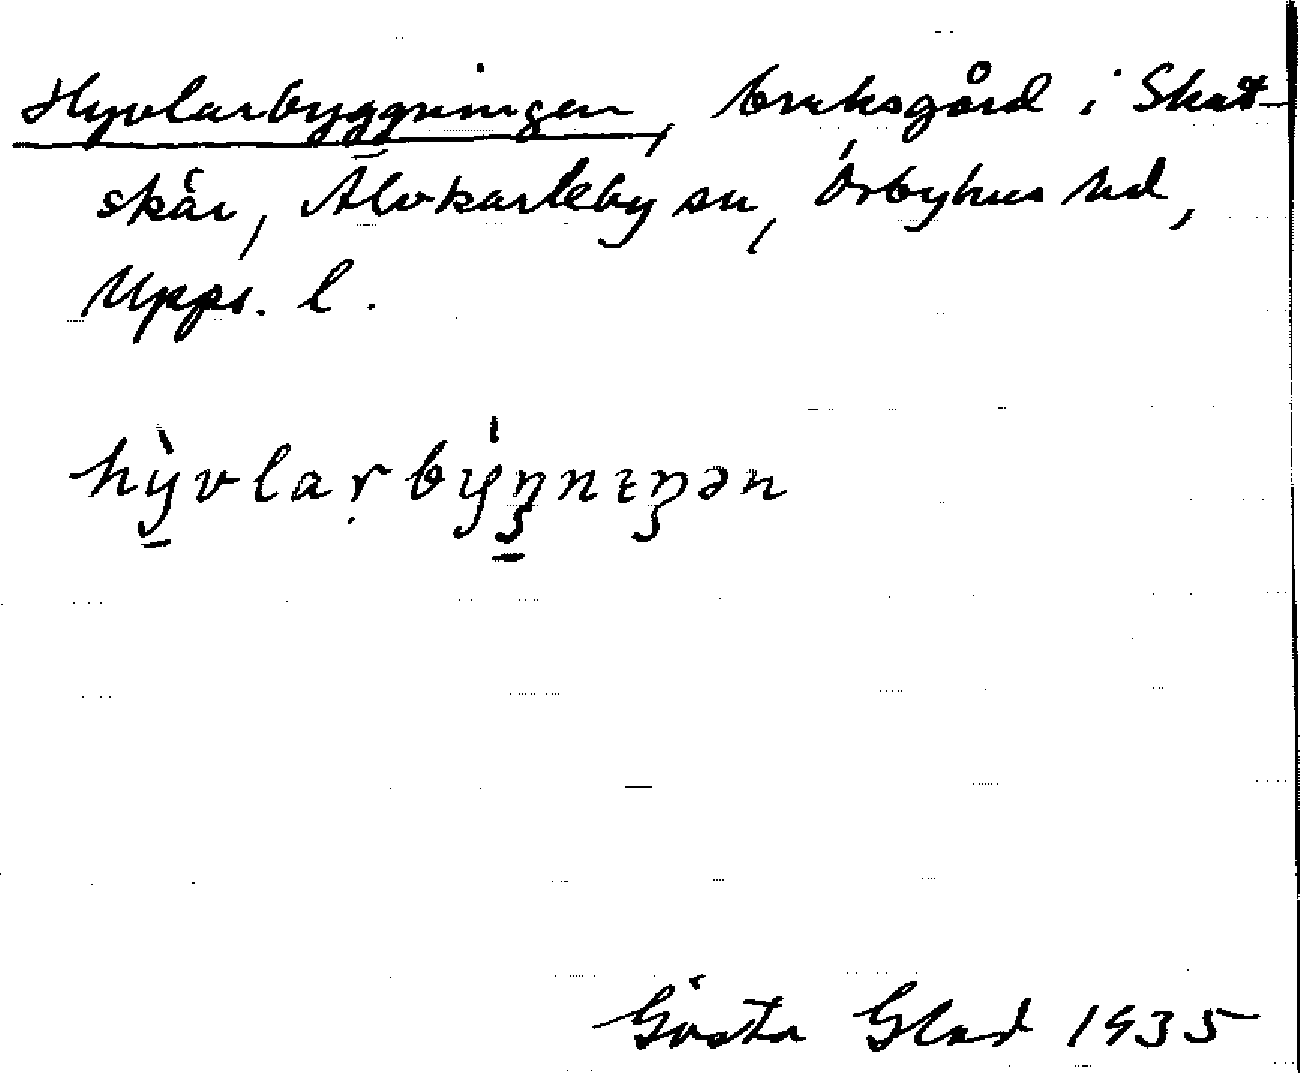 Hyvlarbyggningen, bruksgård i Skut-
skär, Älvkarleby sn, Örbyhus hd,
Upps. l.
hỳ̠vlarbýŋ̠nɪŋən
Gösta Glad 1935